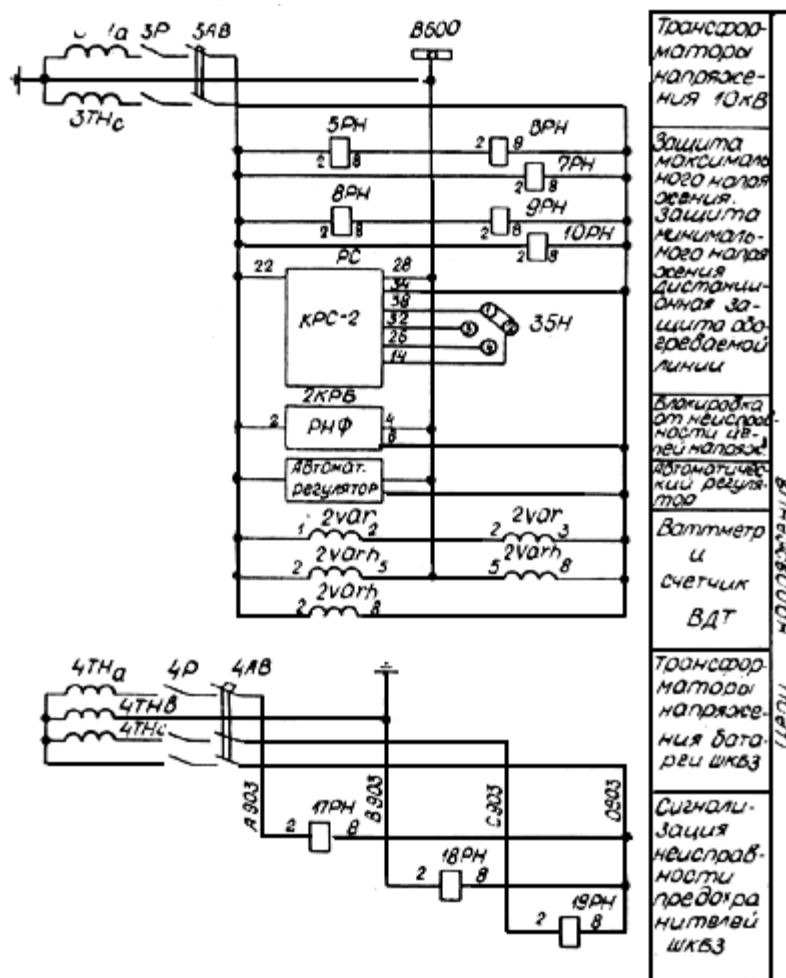 1а 3Р 3АВ В600
3ТНс
5РН 6РН
2 8 2 8
7РН
2 8
8РН 9РН
2 8 2 8
10РН
2 8
РС
22 КРС-2 28
34
38 1
32 3 2 35Н
26 4
14
2КРБ
2 РНФ 4
6
Автомат.
регулятор
2var 2var
1 2 2 3
2varh 2varh
2 5 5 8
2varh
2 8
4ТНа 4Р 4АВ
4ТНв
4ТНс
А903 В903 С903 О903
17РН
2 8
18РН
2 8
19РН
2 8
Трансфор-
маторы
напряже-
ния 10кВ
Защита
максималь
ного напря
жения.
Защита
минималь-
ного напря
жения
дистанци-
онная за-
щита обо-
греваемой
линии
Блокировка
от неисправ-
ности це-
пей напряж.
Автоматичес-
кий регуля-
тор
Ваттметр
и
счетчик
ВДТ
Трансфор-
маторы
напряже-
ния бата-
реи ШКБЗ
Сигнали-
зация
неисправ-
ности
предохра
нителей
ШКБЗ
Цепи напряжения